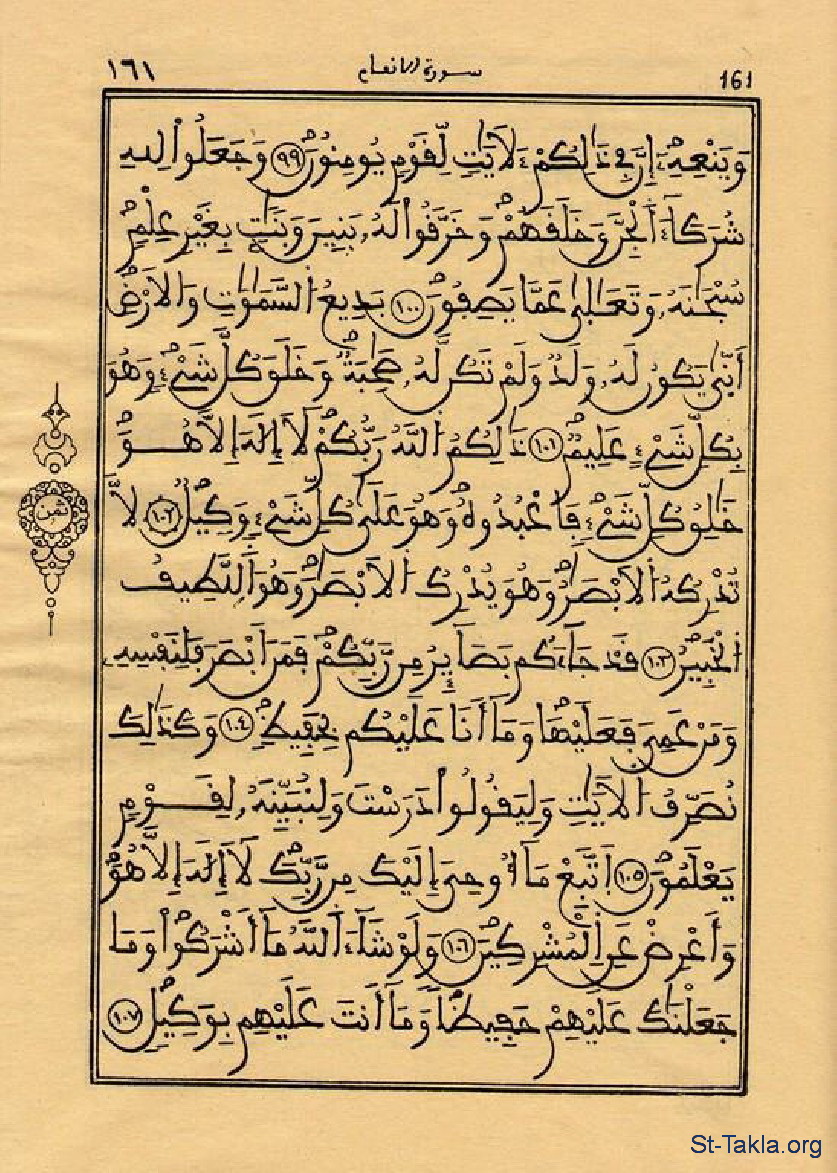 ١٦١ سورة الانعام 161
وَيَنْعِهِۦٓۖ إِنَّ فِے ذَٰلِكُمْ لَأٓيَٰتٖ لِّقَوْمٖ يُومِنُونَۖ ٩٩ وَجَعَلُواْ لِلهِ
شُرَكَآءَ اَ۬لْجِنَّ وَخَلَقَهُمْۖ وَخَرَّقُواْ لَهُۥ بَنِينَ وَبَنَٰتِۢ بِغَيْرِ عِلْمٖۖ
سُبْحَٰنَهُۥ وَتَعَٰلَىٰ عَمَّا يَصِفُونَۖ ١٠٠ بَدِيعُ اُ۬لسَّمَٰوَٰتِ وَالَارْضِۖ
أَنّ۪يٰ يَكُونُ لَهُۥ وَلَدٞ وَلَمْ تَكُن لَّهُۥ صَٰحِبَةٞۖ وَخَلَقَ كُلَّ شَےْءٖۖ وَهُوَ
بِكُلِّ شَےْءٍ عَلِيمٞۖ ١٠١ ذَٰلِكُمُ اُ۬للَّهُ رَبُّكُمْ لَآ إِلَٰهَ إِلَّا هُوَۖ
خَٰلِقُ كُلِّ شَےْءٖۖ فَاعْبُدُوهُۖ وَهُوَ عَلَىٰ كُلِّ شَےْءٖ وَكِيلٞۖ ١٠٢ لَّا
تُدْرِكُهُ اُ۬لَابْصَٰرُۖ وَهُوَ يُدْرِكُ اُ۬لَابْصَٰرَۖ وَهُوَ اَ۬للَّطِيفُ
اُ۬لْخَبِيرُۖ ١٠٣ قَدْ جَآءَكُم بَصَآئِرُ مِن رَّبِّكُمْۖ فَمَنَ اَبْصَرَ فَلِنَفْسِهِۦ
وَمَنْ عَمِيَ فَعَلَيْهَاۖ وَمَآ أَنَا عَلَيْكُم بِحَفِيظٖۖ ١٠٤ وَكَذَٰلِكَ
نُصَرِّفُ اُ۬لَايَٰتِ وَلِيَقُولُواْ دَرَسْتَ وَلِنُبَيِّنَهُۥ لِقَوْمٖ
يَعْلَمُونَۖ ١٠٥ اَ۪تَّبِعْ مَآ أُوحِيَ إِلَيْكَ مِن رَّبِّكَ لَآ إِلَٰهَ إِلَّا هُوَۖ
وَأَعْرِضْ عَنِ اِ۬لْمُشْرِكِينَۖ ١٠٦ وَلَوْ شَآءَ اَ۬للَّهُ مَآ أَشْرَكُواْۖ وَمَا
جَعَلْنَٰكَ عَلَيْهِمْ حَفِيظاٗۖ وَمَآ أَنتَ عَلَيْهِم بِوَكِيلٖۖ ١٠٧
ثمن
St-Takla.org